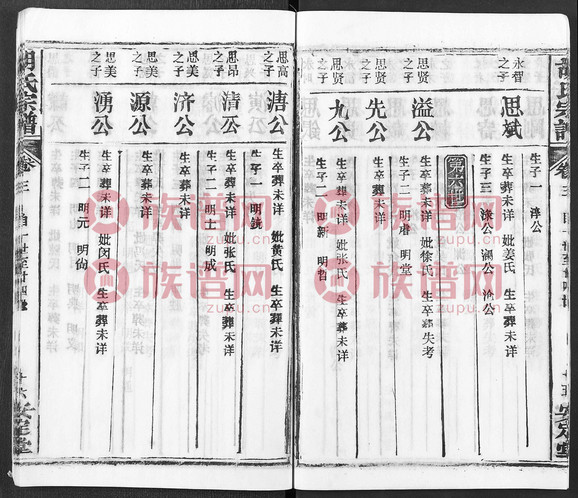 永智
之子
思斌
生卒葬未详 妣姜氏 生卒葬未详
生子一 淳公
生子三 渌公 澜公 沧公
思贤
之子
溢公
生卒葬未详 妣徐氏 生卒葬失考
生子二 明睿 明堂
思贤
之子
先公
思贤
之子
九公
生卒葬未详 妣张氏 生卒葬未详
生子二 明新 明哲
胡氏宗谱
卷三
十五
安定堂
思高
之子
溏公
生卒葬未详 妣黄氏 生卒葬未详
生子一 明镜
思昂
之子
清公
生卒葬未详 妣张氏 生卒葬未详
生子二 明士 明成
思美
之子
济公
生卒葬未详
思美
之子
源公
生卒葬未详
思美
之子
湧公
生卒葬未详 妣闵氏 生卒葬未详
生子二 明元 明尚
胡氏宗谱
卷三
十六
安定堂
族谱网
zupu.cn